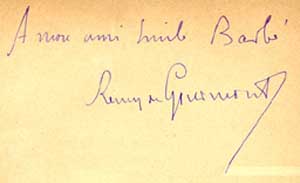 A mon ami Emile Barbé
Remy de Gourmont